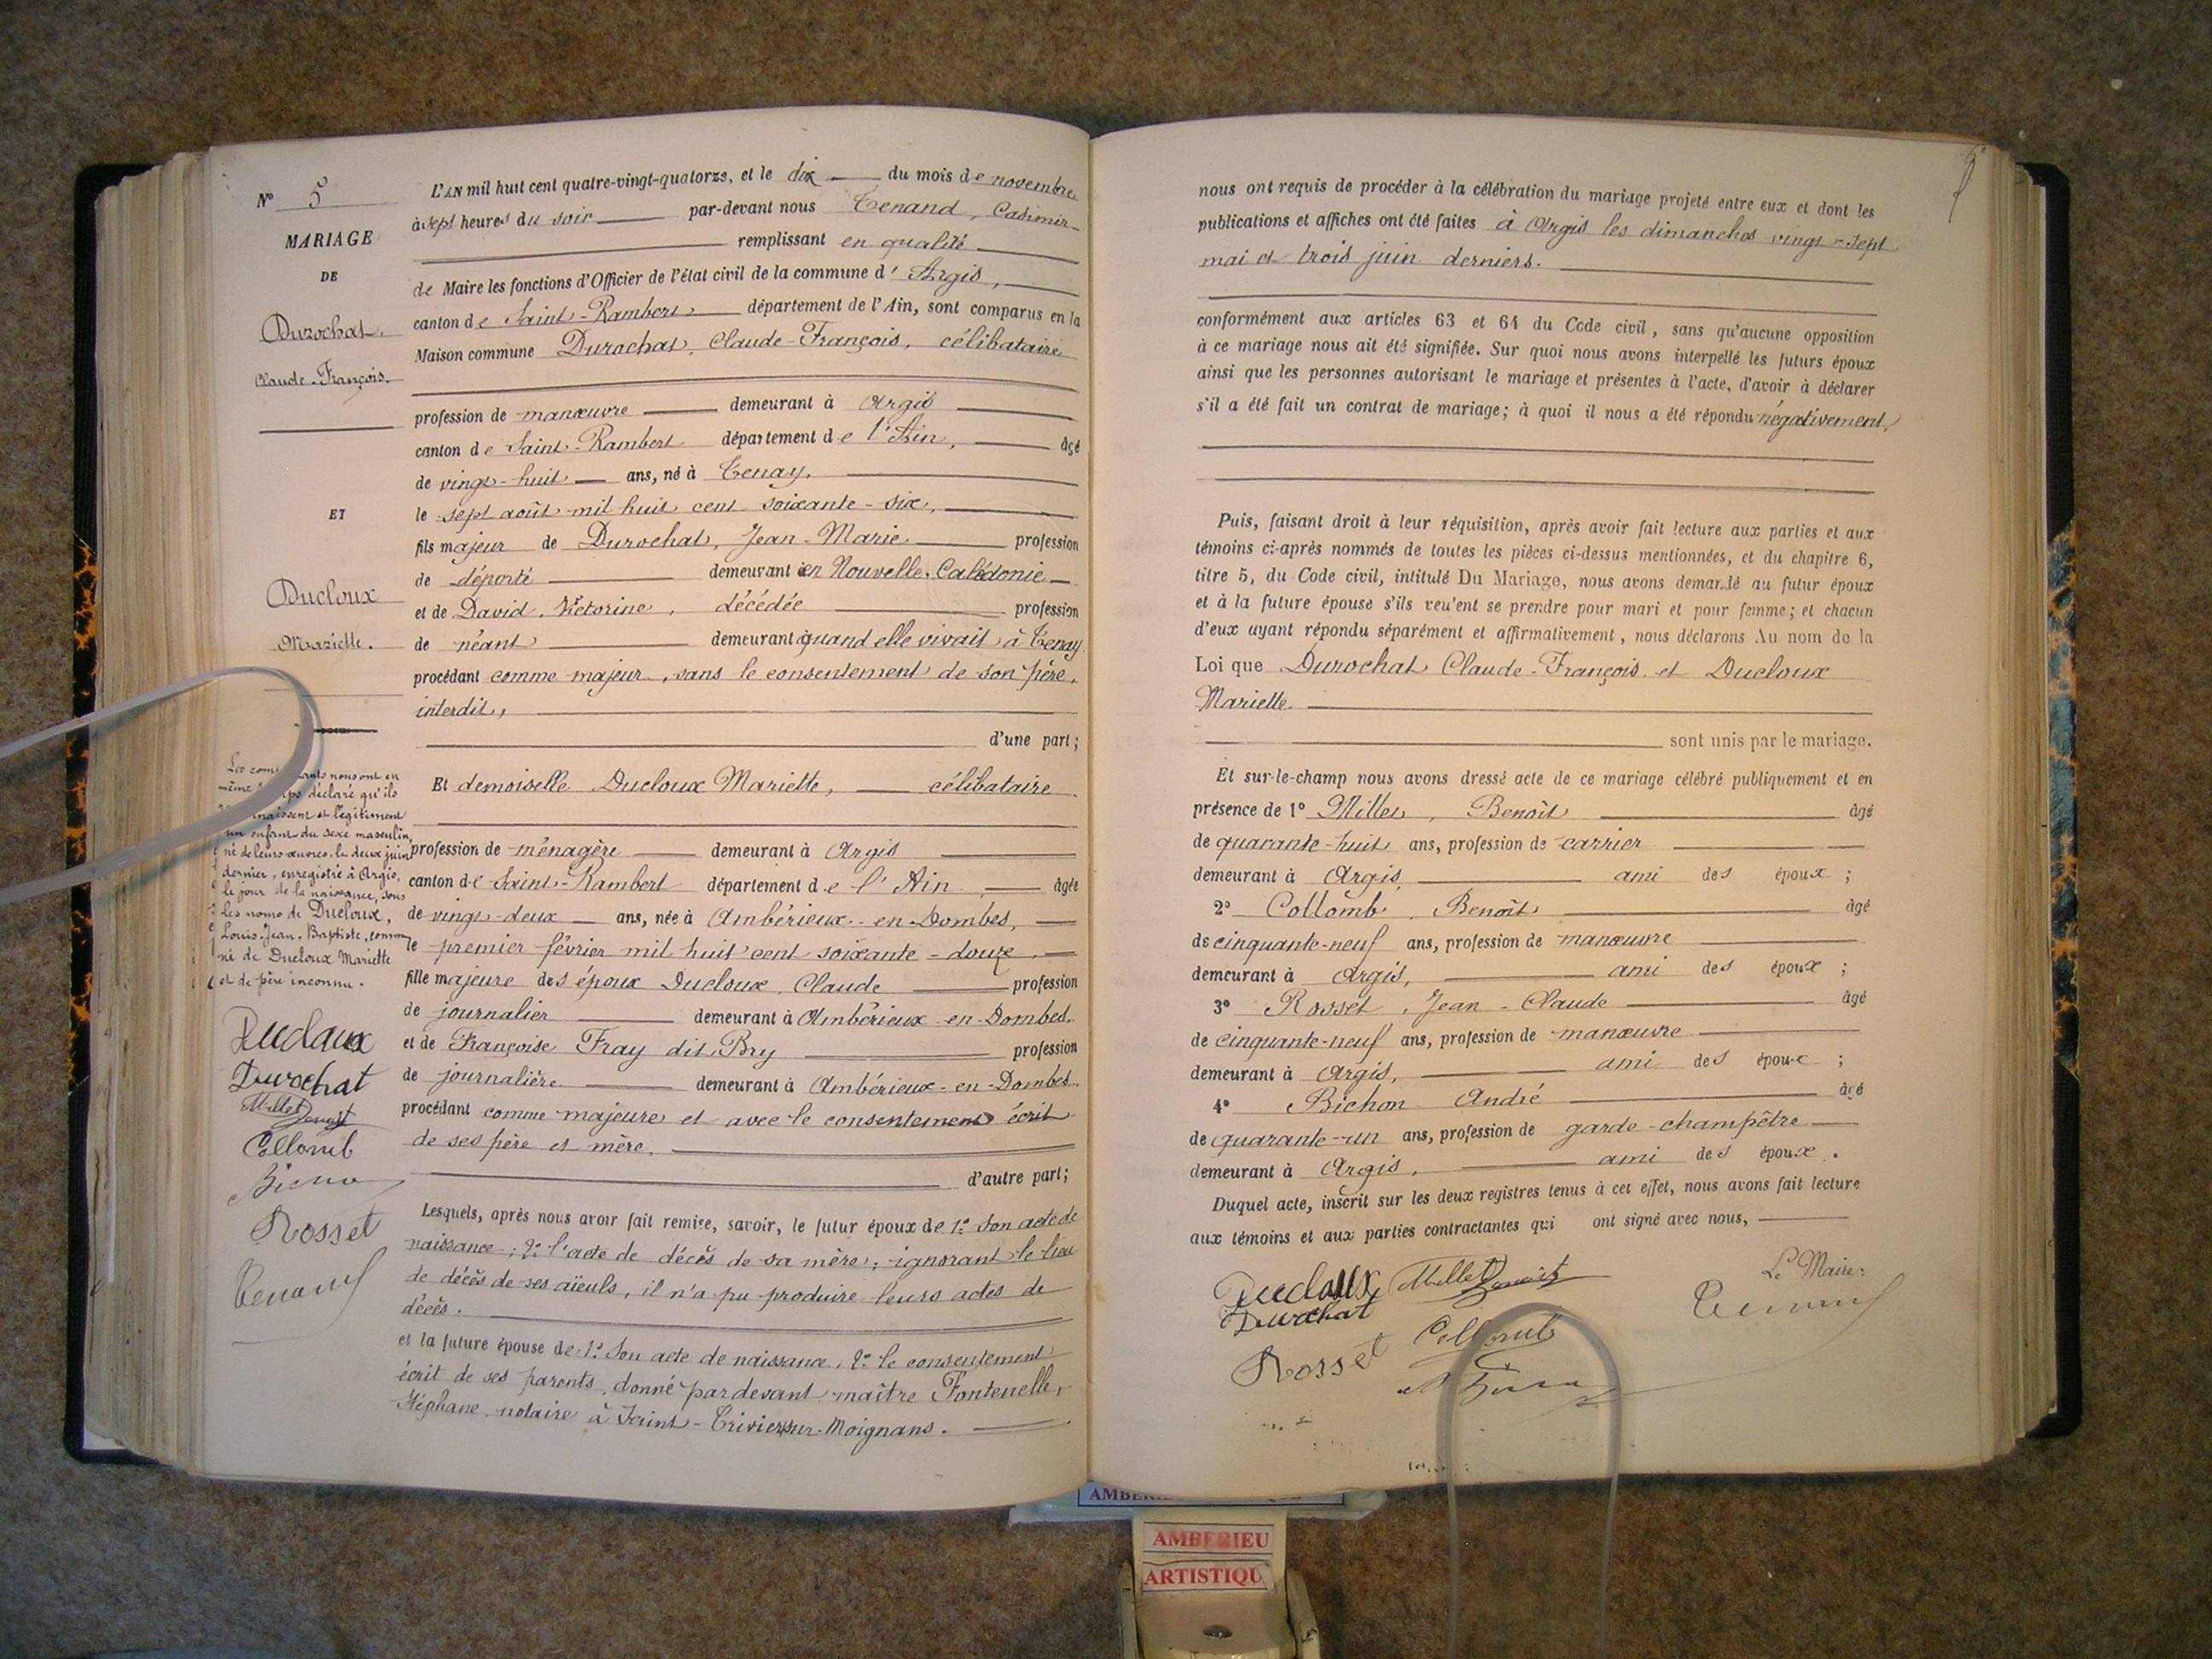 N° 5
MARIAGE
DE
Durochat
Claude-François.
ET
Ducloux
Mariette.
nous ont en
même déclaré qu'ils
et légitiment
un enfant du sexe masculin,
né de leurs œuvres le deux juin
dernier, enregistré à Argis,
le jour de la naissance, sous
les noms de Ducloux,
Louis-Jean-Baptiste, comme
né de Ducloux Mariette
et de père inconnu.
Ducloux
Durochat
Millet Benoit
Collomb
Rosset
Tenand
L'AN mil huit cent quatre-vingt-quatorze, et le dix du mois de novembre
à sept heures du soir par-devant nous Tenand, Casimir
remplissant en qualité
de Maire les fonctions d'Officier de l'état civil de la commune d'Argis,
canton de Saint-Rambert département de l'Ain, sont comparus en la
Maison commune Durochat, Claude-François, célibataire
profession de manœuvre demeurant à Argis
canton de Saint-Rambert département de l'Ain, âgé
de vingt-huit ans, né à Tenay,
le sept août mil huit cent soixante-six,
fils majeur de Durochat, Jean-Marie profession
de déporté demeurant en Nouvelle-Calédonie
et de David, Victorine, décédée profession
de néant demeurant quand elle vivait à Tenay
procédant comme majeur, sans le consentement de son père,
interdit,
d'une part;
Et demoiselle Ducloux Mariette, célibataire
profession de ménagère demeurant à Argis
canton de Saint-Rambert département de l'Ain, âgée
de vingt-deux ans, née à Ambérieux-en-Dombes,
le premier février mil huit cent soixante-douze,
fille majeure des époux Ducloux, Claude profession
de journalier demeurant à Ambérieux-en-Dombes.
et de Françoise Fray dit Bry profession
de journalière demeurant à Ambérieux-en-Dombes.
procédant comme majeure et avec le consentement écrit
de ses père et mère,
d'autre part;
Lesquels, après nous avoir fait remise, savoir, le futur époux de 1° son acte de
naissance; 2° l'acte de décès de sa mère; ignorant le lieu
de décès de ses aïeuls, il n'a pu produire leurs actes de
décès.
et la future épouse de 1° son acte de naissance, 2° le consentement
écrit de ses parents, donné pardevant maître Fontenelle,
Stéphane notaire à Saint-Trivier-sur-Moignans.
nous ont requis de procéder à la célébration du mariage projeté entre eux et dont les
publications et affiches ont été faites à Argis les dimanches vingt-sept
mai et trois juin derniers.
conformément aux articles 63 et 64 du Code civil, sans qu'aucune opposition
à ce mariage nous ait été signifiée. Sur quoi nous avons interpellé les futurs époux
ainsi que les personnes autorisant le mariage et présentes à l'acte, d'avoir à déclarer
s'il a été fait un contrat de mariage; à quoi il nous a été répondu négativement,
Puis, faisant droit à leur réquisition, après avoir fait lecture aux parties et aux
témoins ci-après nommés de toutes les pièces ci-dessus mentionnées, et du chapitre 6,
titre 5, du Code civil, intitulé Du Mariage, nous avons demandé au futur époux
et à la future épouse s'ils veulent se prendre pour mari et pour femme; et chacun
d'eux ayant répondu séparément et affirmativement, nous déclarons Au nom de la
Loi que Durochat Claude-François et Ducloux
Mariette.
sont unis par le mariage.
Et sur-le-champ nous avons dressé acte de ce mariage célébré publiquement et en
présence de 1° Millet, Benoît âgé
de quarante-huit ans, profession de carrier
demeurant à Argis, ami des époux;
2° Collomb, Benoît âgé
de cinquante-neuf ans, profession de manœuvre
demeurant à Argis, ami des époux;
3° Rosset, Jean-Claude âgé
de cinquante-neuf ans, profession de manœuvre
demeurant à Argis, ami des époux;
4° Bichon André âgé
de quarante-un ans, profession de garde-champêtre
demeurant à Argis, ami des époux.
Duquel acte, inscrit sur les deux registres tenus à cet effet, nous avons fait lecture
aux témoins et aux parties contractantes qui ont signé avec nous,
Le Maire:
Ducloux Millet Benoit
Durochat
Tenand
Rosset Collomb
AMBERIEU
ARTISTIQU